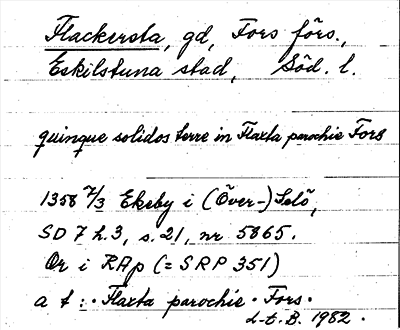 Flackersta, gd, Fors förs.,
Eskilstuna stad, Söd. l.
quinque solidos terre in Flaxta parochie Fors
1358 7/3 Ekeby i (Över-)Selö,
SD 7 h.3, s.21, nr 5865.
Or i RAp (= SRP 351)
a t :· Flaxta parochie · Fors ·
L-t. B. 1982 .